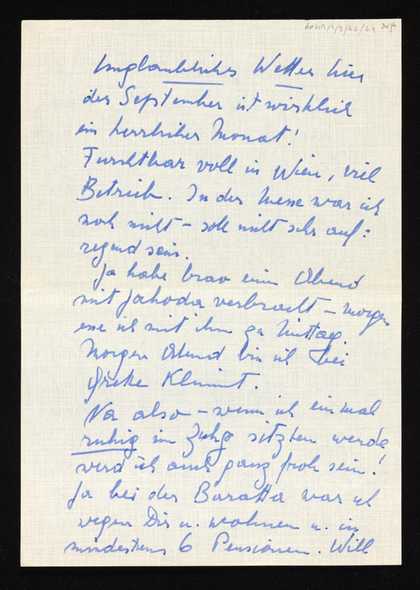 Unglaubliches Wetter hier
der September ist wirklich
ein herrlicher Monat!
Furchtbar voll in Wien, viel
Betrieb. In der Messe war ich
noch nicht – soll nicht sehr auf=
regend sein.
Ja habe brav einen Abend
mit Jahoda verbracht – morgen
esse ich mit ihm zu Mittag.
Morgen Abend bin ich bei
Grete Klimmt.
Na also – wenn ich einmal
ruhig im Zuge sitzen werde
werd ich auch ganz froh sein!
Ja bei der Baratta war ich
wegen Dir u. wohnen u. in
mindestens 6 Pensionen. Will